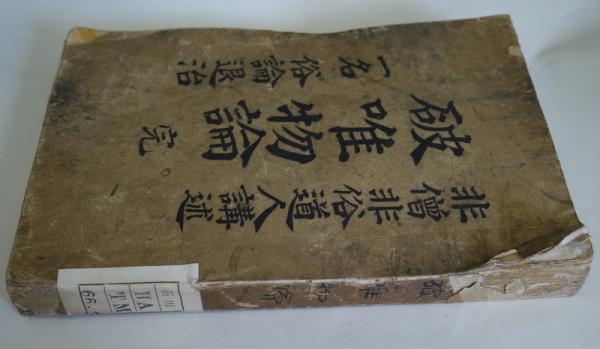 非僧非俗道人講述
破唯物論 完
一名 俗論退治
破唯物論
HA